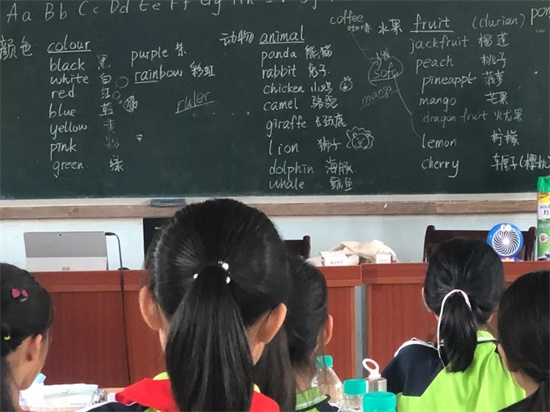 Aa Bb Cc Dd Ee Ff Gg
颜色: colour
black 黑
white 白
red 红
blue 蓝
yellow 黄
pink 粉
green 绿
purple 紫
rainbow 彩虹
ruler
动物 animal
panda 熊猫
rabbit 兔子
chicken 小鸡
camel 骆驼
giraffe 长颈鹿
lion 狮子
dolphin 海豚
whale 鲸鱼
coffee
咖啡
sofa
mango
水果 fruit (durian)
jackfruit 榴莲
peach 桃子
pineapple 菠萝
mango 芒果
dragon fruit 火龙果
lemon 柠檬
cherry 车厘子(樱桃)